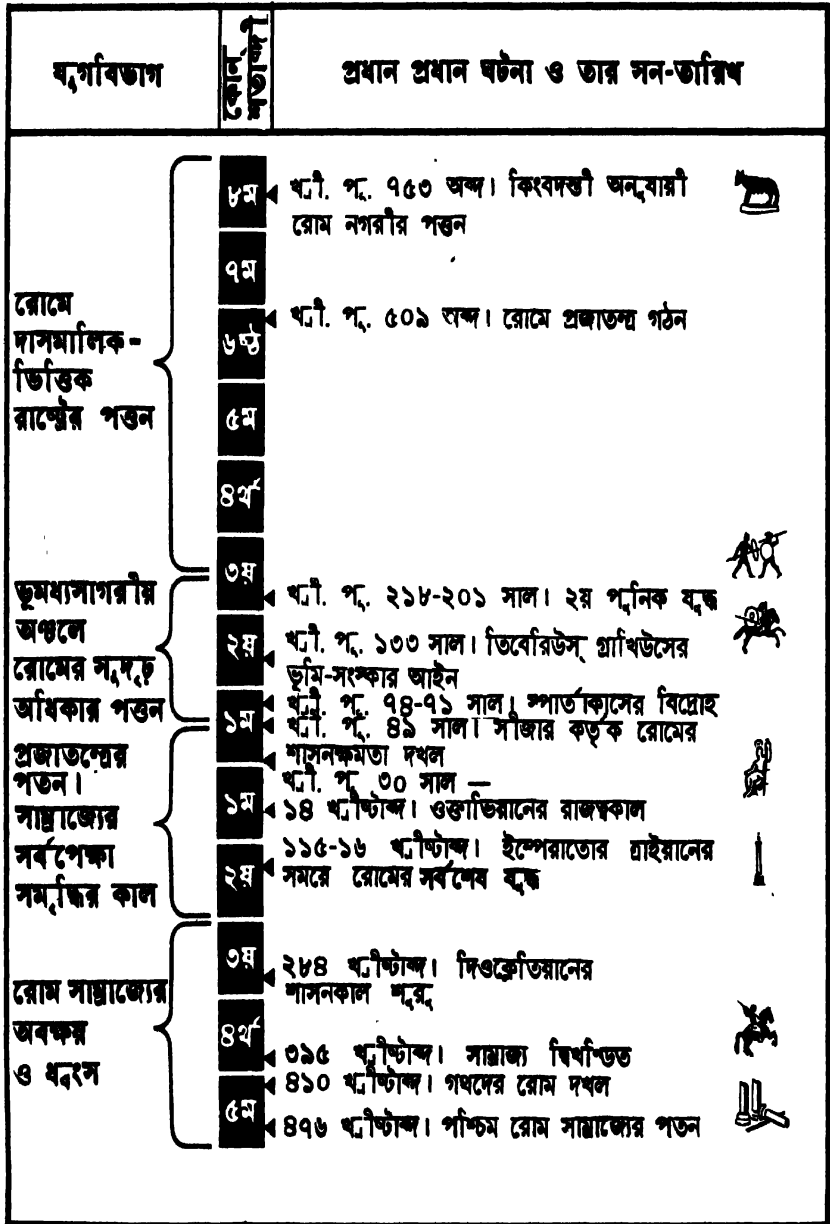 যুগবিভাগ
কোন্ শতাব্দী
প্রধান প্রধান ঘটনা ও তার সন-তারিখ
রোমে
দাসমালিক-
ভিত্তিক
রাষ্ট্রের পত্তন
৮ম
খ্রী. পূ. ৭৫৩ অব্দ। কিংবদন্তী অনুযায়ী
রোম নগরীর পত্তন
৭ম
খ্রী. পূ. ৫০৯ অব্দ। রোমে প্রজাতন্ত্র গঠন
৬ষ্ঠ
৫ম
৪র্থ
৩য়
ভূমধ্যসাগরীয়
অঞ্চলে
রোমের সুদৃঢ়
অধিকার পত্তন
খ্রী. পূ. ২১৮-২০১ সাল। ২য় পুনিক যুদ্ধ
২য়
খ্রী. পূ. ১৩৩ সাল। তিবেরিউস্ গ্রাখিউসের
ভূমি-সংস্কার আইন
খ্রী. পূ. ৭৪-৭১ সাল। স্পার্তাকাসের বিদ্রোহ
১ম
খ্রী. পূ. ৪৯ সাল। সীজার কর্তৃক রোমের
শাসনক্ষমতা দখল
প্রজাতন্ত্রের
পতন।
সাম্রাজ্যের
সর্বপেক্ষা
সমৃদ্ধির কাল
খ্রী. পূ. ৩০ সাল —
১ম
১৪ খ্রীষ্টাব্দ। ওক্তাভিয়ানের রাজত্বকাল
২য়
১১৫-১৬ খ্রীষ্টাব্দ। ইম্পেরাতোর ত্রাইয়ানের
সময়ে রোমের সর্বশেষ যুদ্ধ
রোম সাম্রাজ্যের
অবক্ষয়
ও ধ্বংস
৩য়
২৮৪ খ্রীষ্টাব্দ। দিওক্লেতিয়ানের
শাসনকাল শুরু
৪র্থ
৩৯৫ খ্রীষ্টাব্দ। সাম্রাজ্য দ্বিখণ্ডিত
৪১০ খ্রীষ্টাব্দ। গথদের রোম দখল
৫ম
৪৭৬ খ্রীষ্টাব্দ। পশ্চিম রোম সাম্রাজ্যের পতন